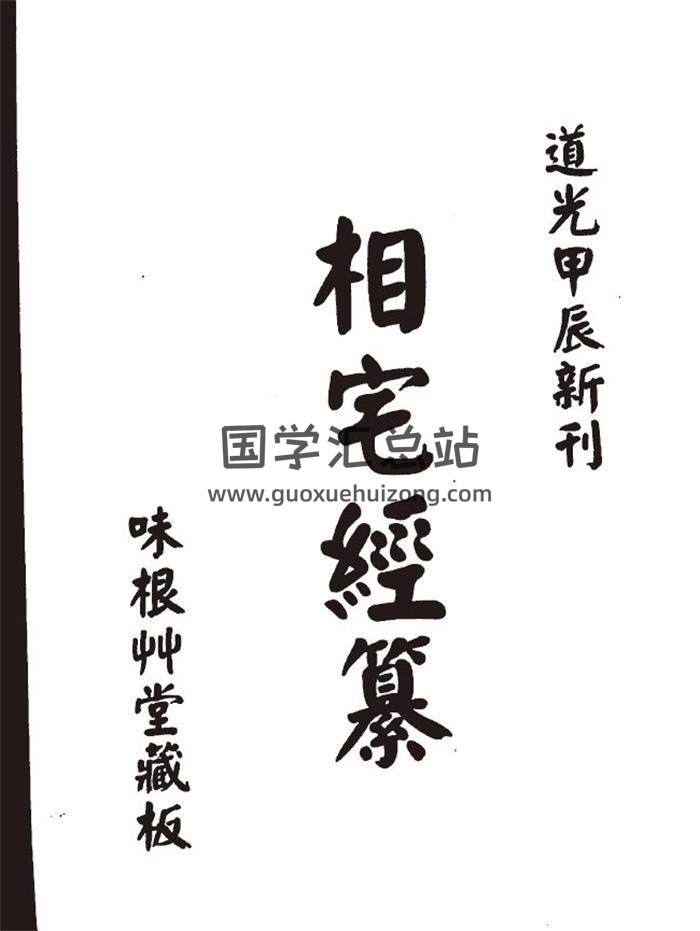 道光甲辰新刊
相宅經纂
味根艸堂藏板
国学汇总站
www.guoxuehuizong.com